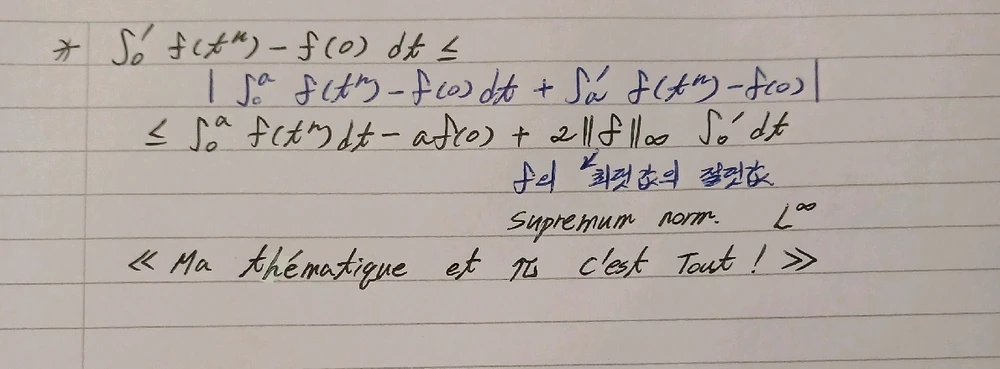 * ∫₀¹ f(tⁿ) - f(0) dt ≤
| ∫₀ᵃ f(tⁿ) - f(0) dt + ∫ₐ¹ f(tⁿ) - f(0) |
≤ ∫₀ᵃ f(tⁿ) dt - a f(0) + 2||f||∞ ∫₀¹ dt
f의 최댓값의 절댓값
Supremum norm. L^∞
« Ma thématique et π c'est Tout ! »